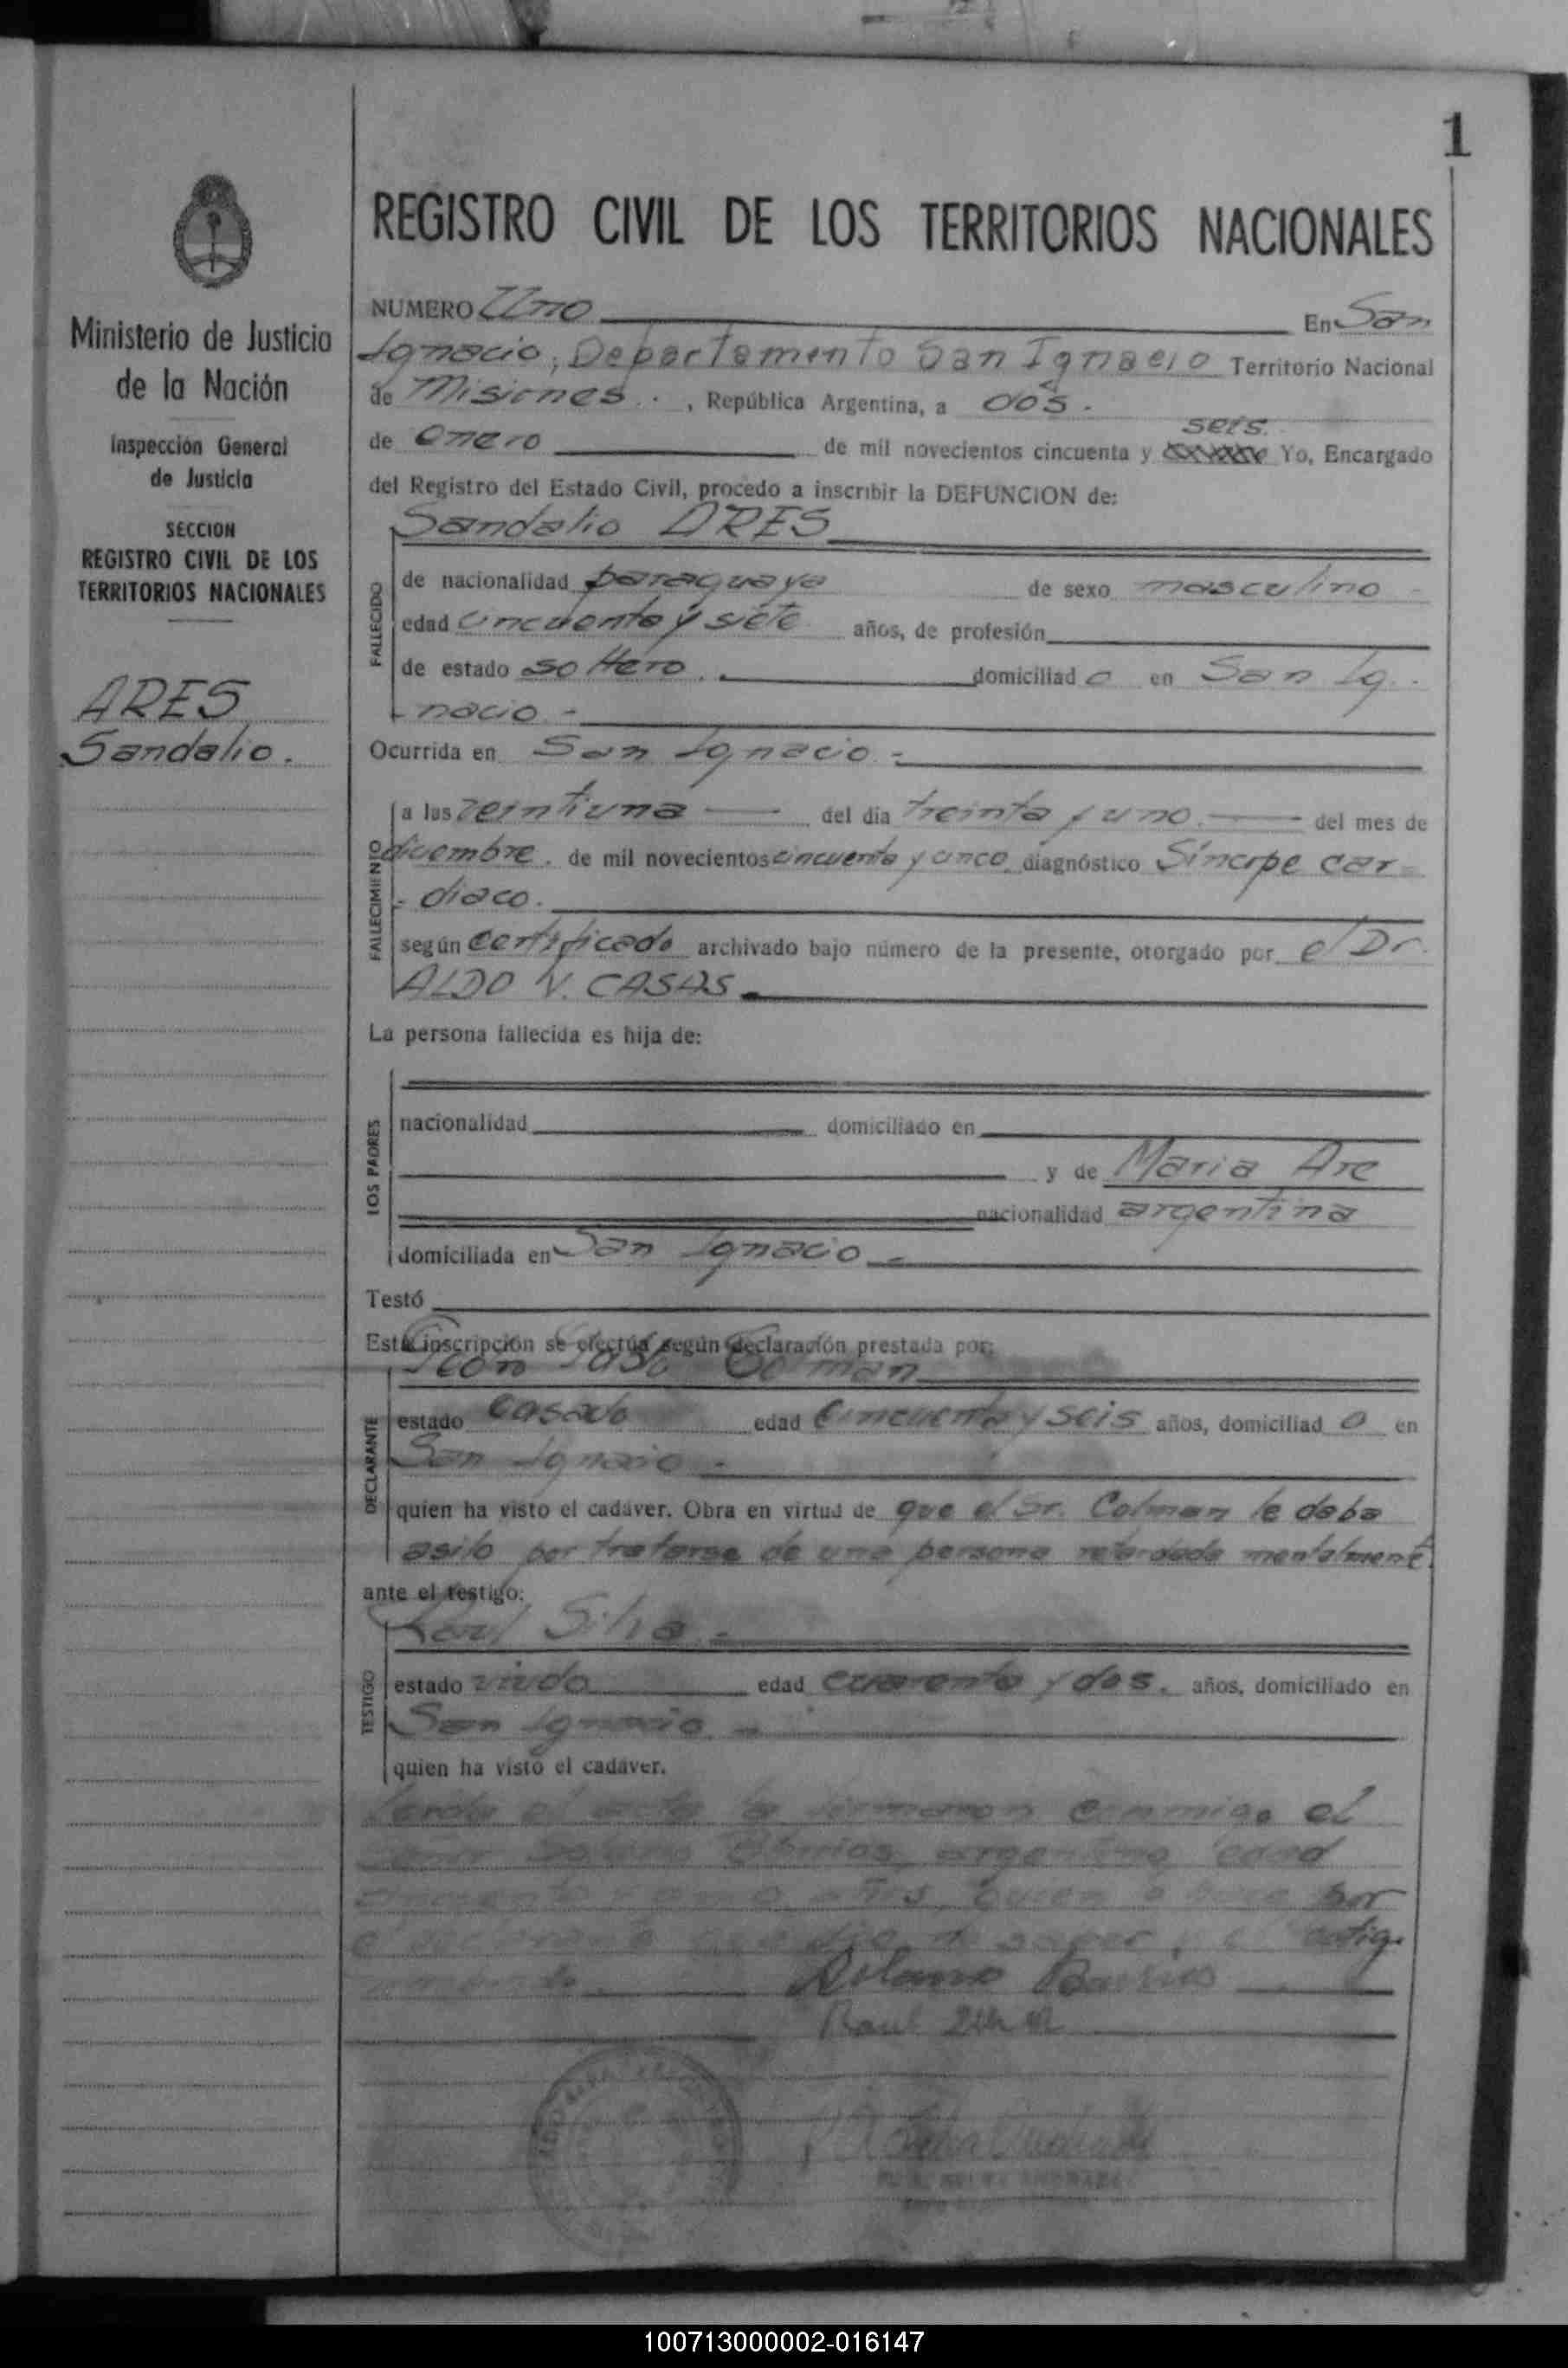 1
REGISTRO CIVIL DE LOS TERRITORIOS NACIONALES
Ministerio de Justicia
de la Nación
Inspección General
de Justicia
SECCION
REGISTRO CIVIL DE LOS
TERRITORIOS NACIONALES
ARES
Sandalio.
NUMERO Uno En San
Ignacio, Departamento San Ignacio Territorio Nacional
de Misiones. , República Argentina, a dos.
seis.
de enero de mil novecientos cincuenta y Yo, Encargado
del Registro del Estado Civil, procedo a inscribir la DEFUNCION de:
Sandalio ARES
FALLECIDO
de nacionalidad paraguaya de sexo masculino -
edad cincuenta y siete años, de profesión
de estado soltero. domiciliado en San Ig-
- nacio -
Ocurrida en San Ignacio -
FALLECIMIENTO
a las veintiuna del día treinta y uno. del mes de
diciembre. de mil novecientos cincuenta y cinco diagnóstico Síncope car-
- diaco.
según certificado archivado bajo número de la presente, otorgado por el Dr.
ALDO V. CASAS
La persona fallecida es hija de:
LOS PADRES
nacionalidad domiciliado en
y de Maria Are
nacionalidad argentina
domiciliada en San Ignacio -
Testó
Esta inscripción se efectúa según declaración prestada por:
Colman
DECLARANTE
estado casado edad cincuenta y seis años, domiciliado en
San Ignacio -
quien ha visto el cadáver. Obra en virtud de que el Sr. Colman le daba
asilo por tratarse de una persona retardada mentalment
ante el testigo:
Raul Silva -
TESTIGO
estado viudo edad cuarenta y dos. años, domiciliado en
San Ignacio -
quien ha visto el cadáver.
el acta la firmaron conmigo el
Barrios, argentino, edad
años, quien por
saber
Solano Barrios
Raul
100713000002-016147